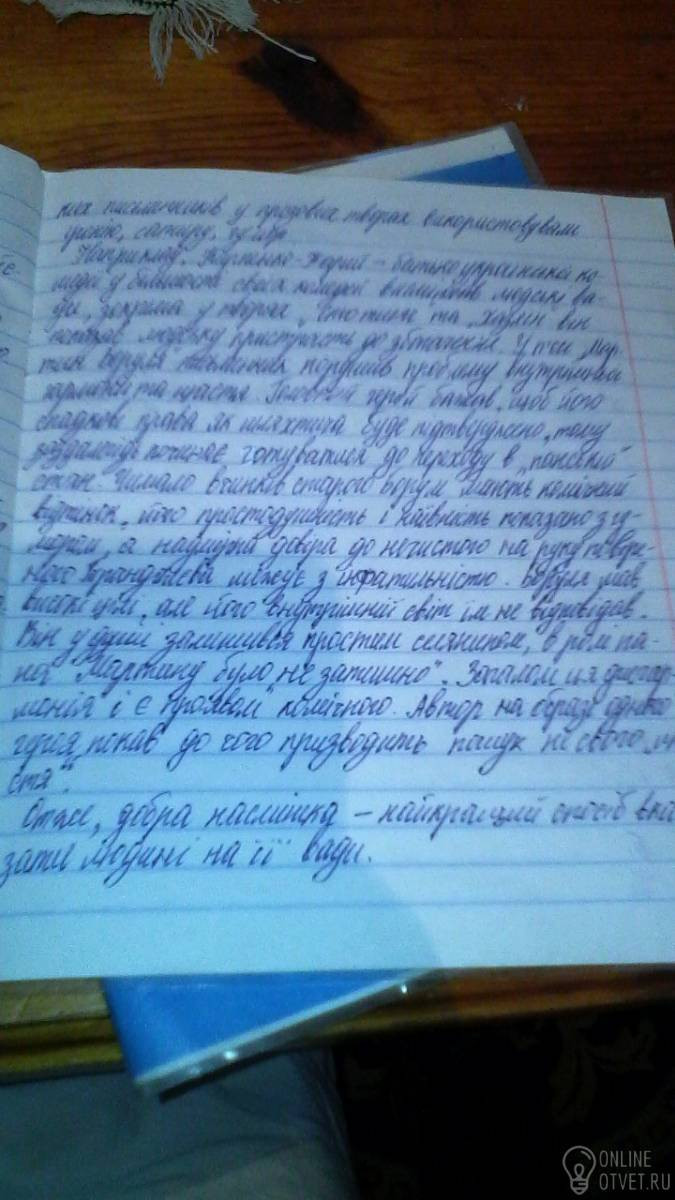 ких письменників у прозових творах використовували
іронію, сатиру, гумор
Наприклад, Карпенко-Карий – батько української ко-
медії у більшості своїх комедій висміював людські ва-
ди, зокрема у творах „Сто тисяч" та „Хазяїн" він
показав людську пристрасть до збагачення. У п'єсі „Мар-
тин Боруля" письменник порушив проблему внутрішньої
гармонії та щастя. Головний герой бажав, щоб його
спадкові права як шляхтича буде підтверджено, тому
заздалегідь починає готуватися до переходу в „панський
стан". Чимало вчинків старого Борулі мають комічний
відтінок, його простодушність і наївність показано з гу-
мором, а надмірна довіра до нечистого на руку повіре-
ного Трандалєва межує з інфантильністю. Боруля мав
високі цілі, але його внутрішній світ їм не відповідав.
Він у душі залишився простим селянином, в ролі па-
на Мартину було не затишно". Загалом ця дисгар-
монія і є проявом комічного. Автор на образі одного
героя показав до чого призводить пошук не свого „ща
стя".
Отже, добра насмішка – найкращий спосіб вка
зати людині на її вади.
ONLINE
OTVET.RU